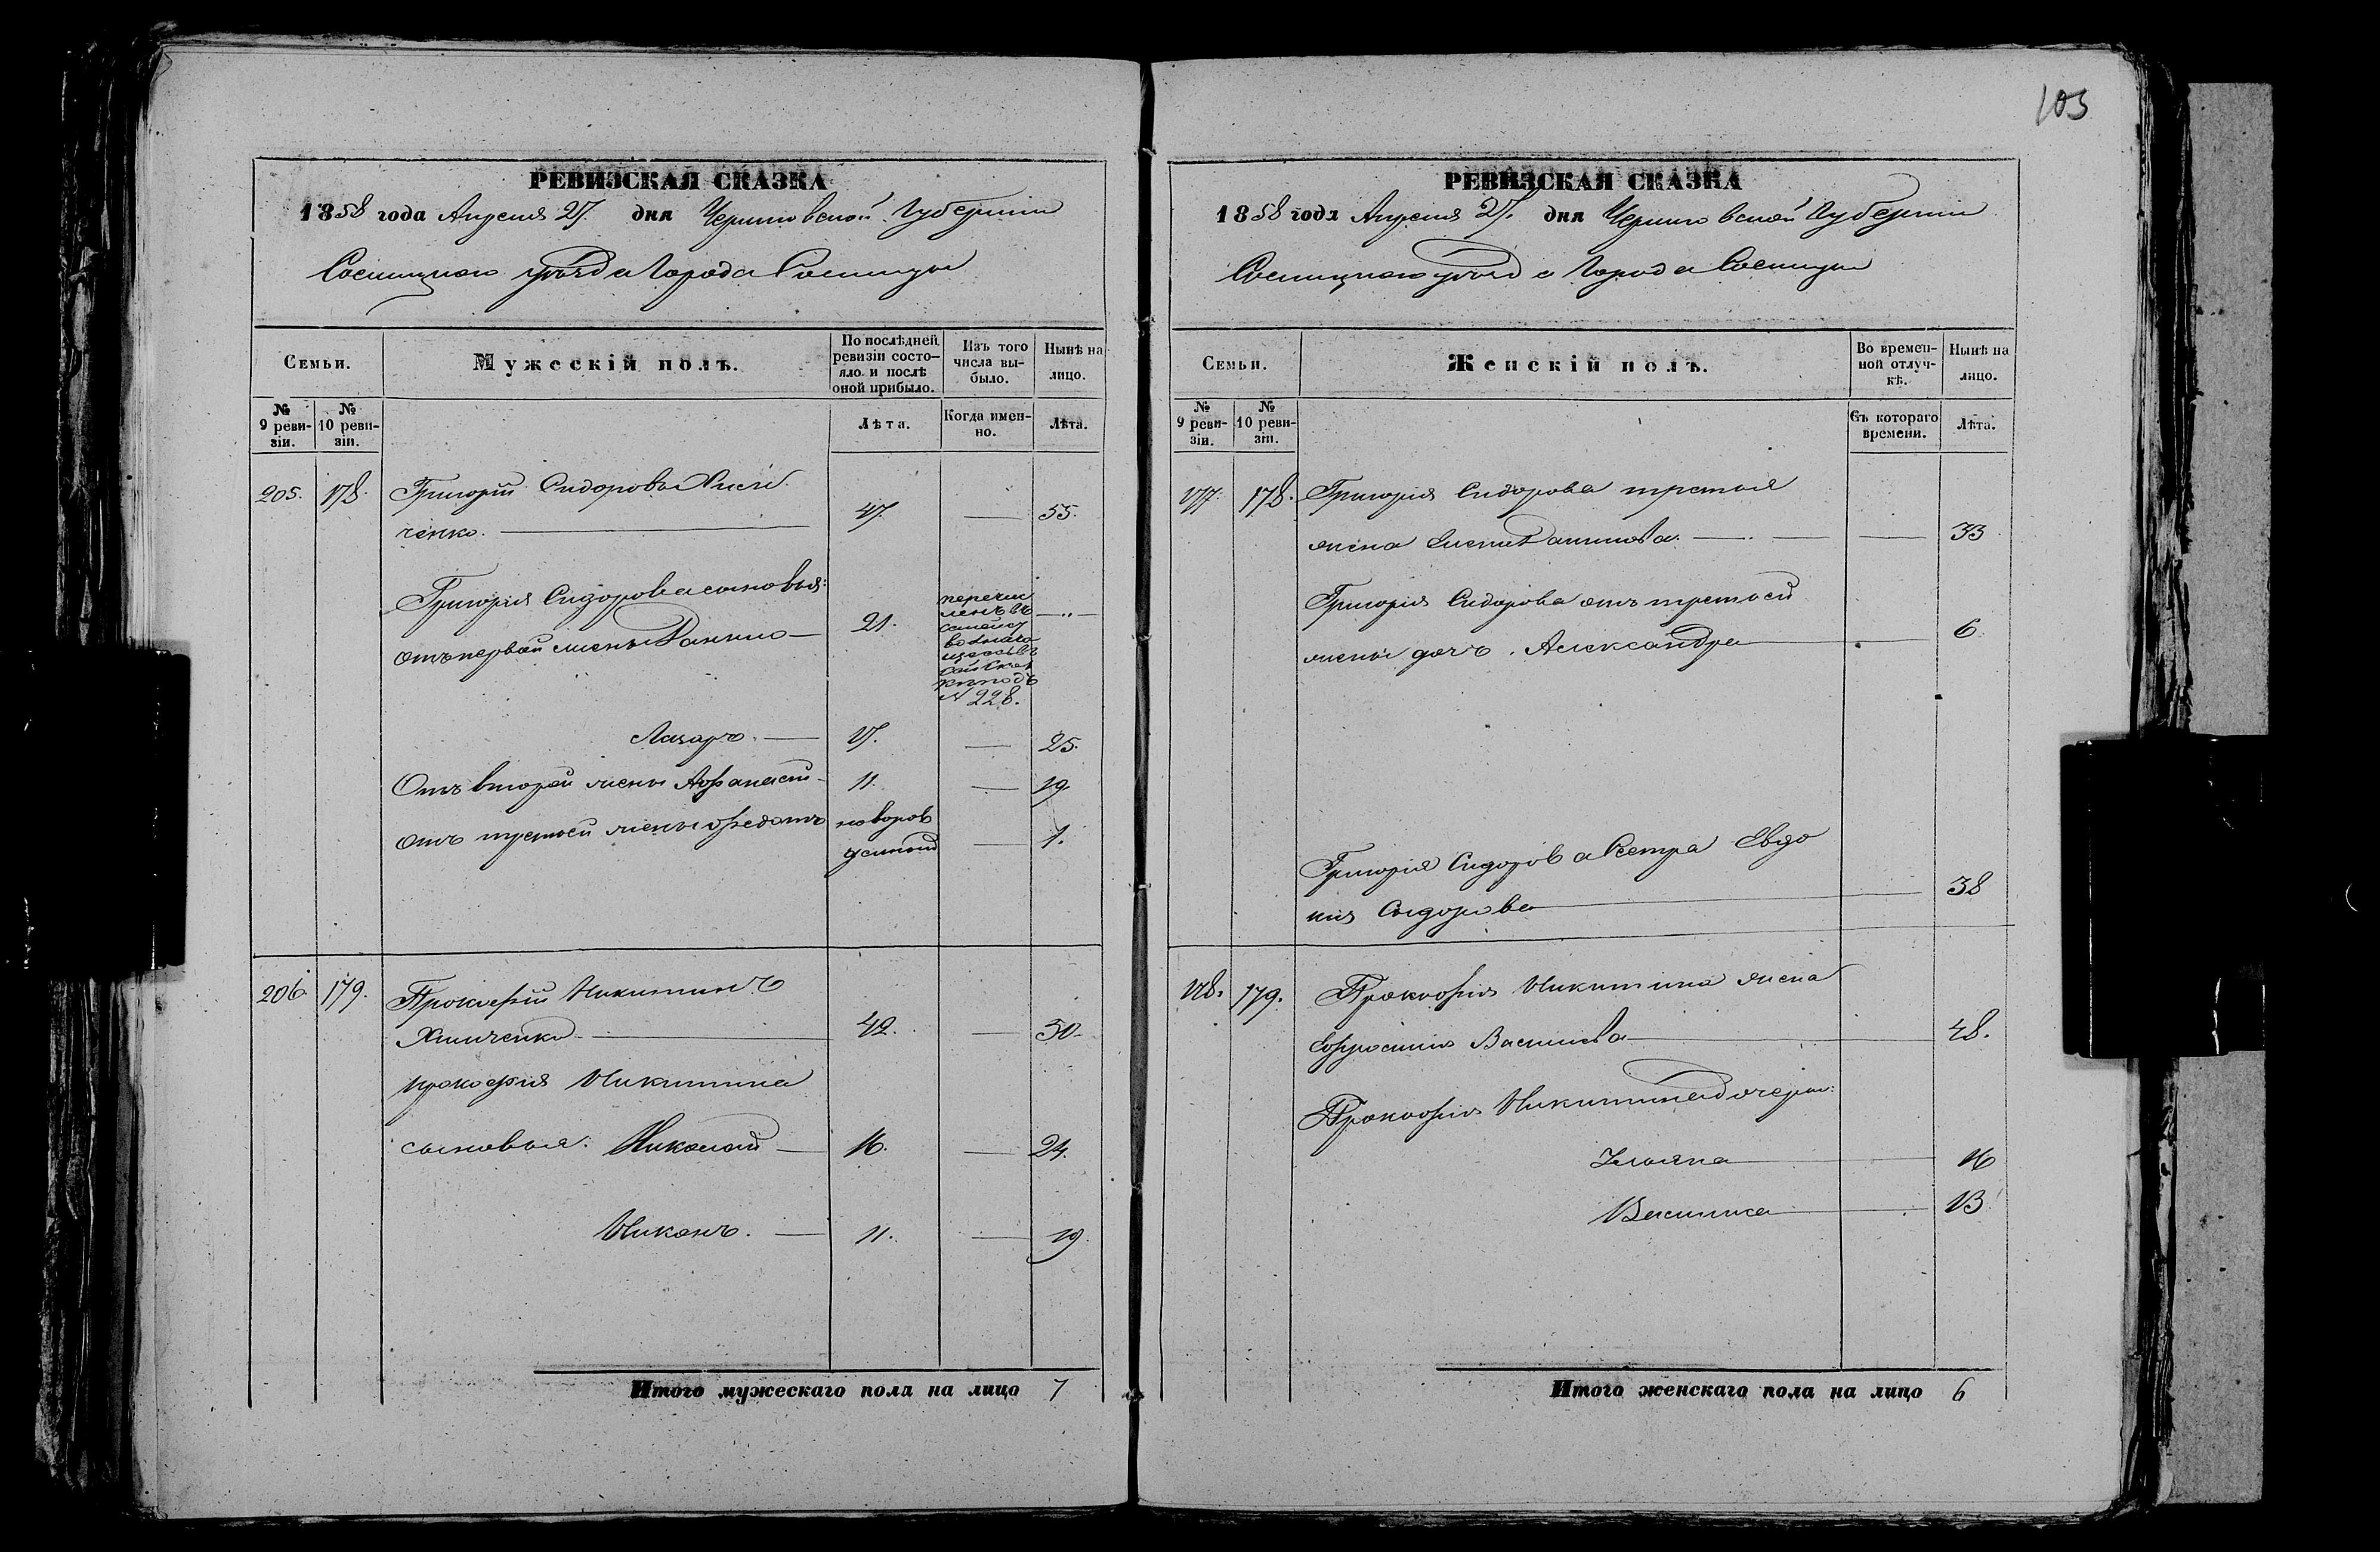 103
РЕВИЗСКАЯ СКАЗКА
1858 года Апреля 27. дня Черниговской Губернии
Сосницкаго уѣзда Города Сосницы
Семьи.
Мужескій полъ.
По послѣдней ревизіи состо-
яло и послѣ
оной прибыло.
Изъ того
числа вы-
было.
Нынѣ на
лицо.
№
9 реви-
зіи.
№
10 реви-
зіи.
Лѣта.
Когда имен-
но.
Лѣта.
205. 178. Григорій Сидоровъ
ченко. 47. 55.
Григорія Сидорова сыновья:
отъ первой жены Данило 21.
перечис
ленъ въ
семейст
во
подъ
№ 228.
Лазарь. 17. 25.
Отъ второй жены Афанасій 11. 19.
отъ третьей жены Федотъ новорож
денный 1.
206. 179. Прокофій Никитинъ
Химченко 42. 50.
Прокофія Никитина
сыновья: Николай 16. 24.
Никонъ. 11. 19.
Итого мужескаго пола на лицо 7
РЕВИЗСКАЯ СКАЗКА
1858 года Апреля 27. дня Черниговской Губернии
Сосницкаго уѣзда Города Сосницы
Семьи.
Женскій полъ.
Во времен-
ной отлуч-
кѣ.
Нынѣ на
лицо.
№
9 реви-
зіи.
№
10 реви-
зіи.
Съ котораго
времени.
Лѣта.
177. 178. Григорія Сидорова третья
жена Елена Данилова. 33
Григорія Сидорова отъ третьей
жены дочь. Александра 6.
Григорія Сидорова Сестра Евдо
кия Сидорова 38
178. 179. Прокофія Никитина жена
Ефросинія Васильева 48.
Прокофія Никитина дочери:
Ульяна 16
Василиса 13.
Итого женскаго пола на лицо 6